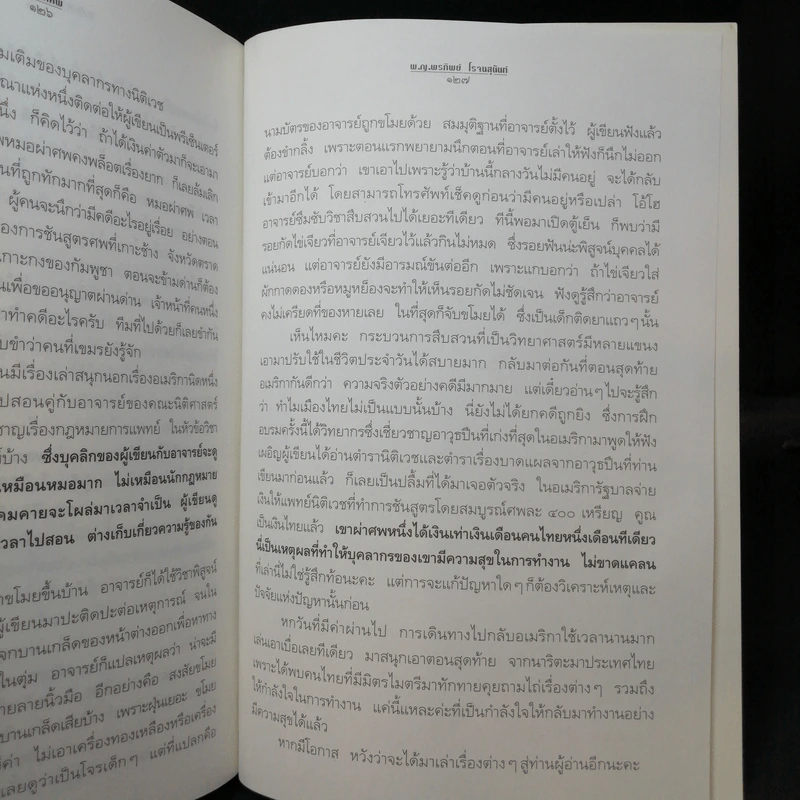 ๑๒๖
มเดิมของบุคลากรทางนิติเวช
ณาแห่งหนึ่งติดต่อให้ผู้เขียนเป็นพรีเซ็นเตอร์
นึ่ง ก็คิดไว้ว่า ถ้าได้เงินค่าตัวมาก็จะเอามา
พหมอผ่าศพคงพล็อตเรื่องยาก ก็เลยล้มเลิก
นที่ถูกทักมากที่สุดก็คือ หมอผ่าศพ เวลา
ผู้คนจะนึกว่ามีคดีอะไรอยู่เรื่อย อย่างตอน
องการชันสูตรศพที่เกาะช้าง จังหวัดตราด
เกาะกงของกัมพูชา ตอนจะข้ามด่านก็ต้อง
นเพื่อขออนุญาตผ่านด่าน เจ้าหน้าที่คนหนึ่ง
าทำคดีอะไรครับ ทีมที่ไปด้วยก็เลยขำกัน
บขำว่าคนที่เขมรยังรู้จัก
นมีเรื่องเล่าสนุกนอกเรื่องอเมริกานิดหนึ่ง
ไปสอนคู่กับอาจารย์ของคณะนิติศาสตร์
ชาญเรื่องกฎหมายการแพทย์ ในหัวข้อวิชา
บ้าง ซึ่งบุคลิกของผู้เขียนกับอาจารย์จะดู
เหมือนหมอมาก ไม่เหมือนนักกฎหมาย
คมคายจะโผล่มาเวลาจำเป็น ผู้เขียนดู
วลาไปสอน ต่างเก็บเกี่ยวความรู้ของกัน
าขโมยขึ้นบ้าน อาจารย์ก็ได้ใช้วิชาพิสูจน์
ผู้เขียนมาปะติดปะต่อเหตุการณ์ จนใน
จกบานเกล็ดของหน้าต่างออกเพื่อหาทาง
ในตุ่ม อาจารย์ก็แปลเหตุผลว่า น่าจะมี
ายลายนิ้วมือ อีกอย่างคือ สงสัยขโมย
บานเกล็ดเสียบ้าง เพราะฝุ่นเยอะ ขโมย
ค่า ไม่เอาเครื่องทองเหลืองหรือเครื่อง
เลยดูว่าเป็นโจรเด็กๆ แต่ที่แปลกคือ
พ.ญ.พรทิพย์ โรจนสุนันท์
๑๒๗
นามบัตรของอาจารย์ถูกขโมยด้วย สมมุติฐานที่อาจารย์ตั้งไว้ ผู้เขียนฟังแล้ว
ต้องขำกลิ้ง เพราะตอนแรกพยายามนึกตอนที่อาจารย์เล่าให้ฟังก็นึกไม่ออก
แต่อาจารย์บอกว่า เขาเอาไปเพราะรู้ว่าบ้านนี้กลางวันไม่มีคนอยู่ จะได้กลับ
เข้ามาอีกได้ โดยสามารถโทรศัพท์เช็คดูก่อนว่ามีคนอยู่หรือเปล่า โอ้โฮ
อาจารย์ซึมซับวิชาสืบสวนไปได้เยอะทีเดียว ทีนี้พอมาเปิดตู้เย็น ก็พบว่ามี
รอยกัดไข่เจียวที่อาจารย์เจียวไว้แล้วกินไม่หมด ซึ่งรอยฟันน่ะพิสูจน์บุคคลได้
แน่นอน แต่อาจารย์ยังมีอารมณ์ขันต่ออีก เพราะแกบอกว่า ถ้าไข่เจียวใส่
ผักกาดดองหรือหมูหย็องจะทำให้เห็นรอยกัดไม่ชัดเจน ฟังดูรู้สึกว่าอาจารย์
คงไม่เครียดที่ของหายเลย ในที่สุดก็จับขโมยได้ ซึ่งเป็นเด็กติดยาแถวๆ นั้น
เห็นไหมคะ กระบวนการสืบสวนที่เป็นวิทยาศาสตร์มีหลายแขนง
เอามาปรับใช้ในชีวิตประจำวันได้สบายมาก กลับมาต่อกันที่ตอนสุดท้าย
อเมริกากันดีกว่า ความจริงตัวอย่างคดีมีมากมาย แต่เดี๋ยวอ่านๆ ไปจะรู้สึก
ว่า ทำไมเมืองไทยไม่เป็นแบบนั้นบ้าง นี่ยังไม่ได้ยกคดีถูกยิง ซึ่งการฝึก
อบรมครั้งนี้ได้วิทยากรซึ่งเชี่ยวชาญอาวุธปืนที่เก่งที่สุดในอเมริกามาพูดให้ฟัง
เผอิญผู้เขียนได้อ่านตำรานิติเวชและตำราเรื่องบาดแผลจากอาวุธปืนที่ท่าน
เขียนมาก่อนแล้ว ก็เลยเป็นปลื้มที่ได้มาเจอตัวจริง ในอเมริการัฐบาลจ่าย
เงินให้แพทย์นิติเวชที่ทำการชันสูตรโดยสมบูรณ์ศพละ ๔๐๐ เหรียญ คูณ
เป็นเงินไทยแล้ว เขาผ่าศพหนึ่งได้เงินเท่าเงินเดือนคนไทยหนึ่งเดือนทีเดียว
นี่เป็นเหตุผลที่ทำให้บุคลากรของเขามีความสุขในการทำงาน ไม่ขาดแคลน
ที่เล่านี่ไม่ใช่รู้สึกท้อนะคะ แต่การจะแก้ปัญหาใดๆ ก็ต้องวิเคราะห์เหตุและ
ปัจจัยแห่งปัญหานั้นก่อน
หกวันที่มีค่าผ่านไป การเดินทางไปกลับอเมริกาใช้เวลานานมาก
เล่นเอาเบื่อเลยทีเดียว มาสนุกเอาตอนสุดท้าย จากนาริตะมาประเทศไทย
เพราะได้พบคนไทยที่มีมิตรไมตรีมาทักทายคุยถามไถ่เรื่องต่างๆ รวมถึง
ให้กำลังใจในการทำงาน แค่นี้แหละค่ะที่เป็นกำลังใจให้กลับมาทำงานอย่าง
มีความสุขได้แล้ว
หากมีโอกาส หวังว่าจะได้มาเล่าเรื่องต่างๆ สู่ท่านผู้อ่านอีกนะคะ